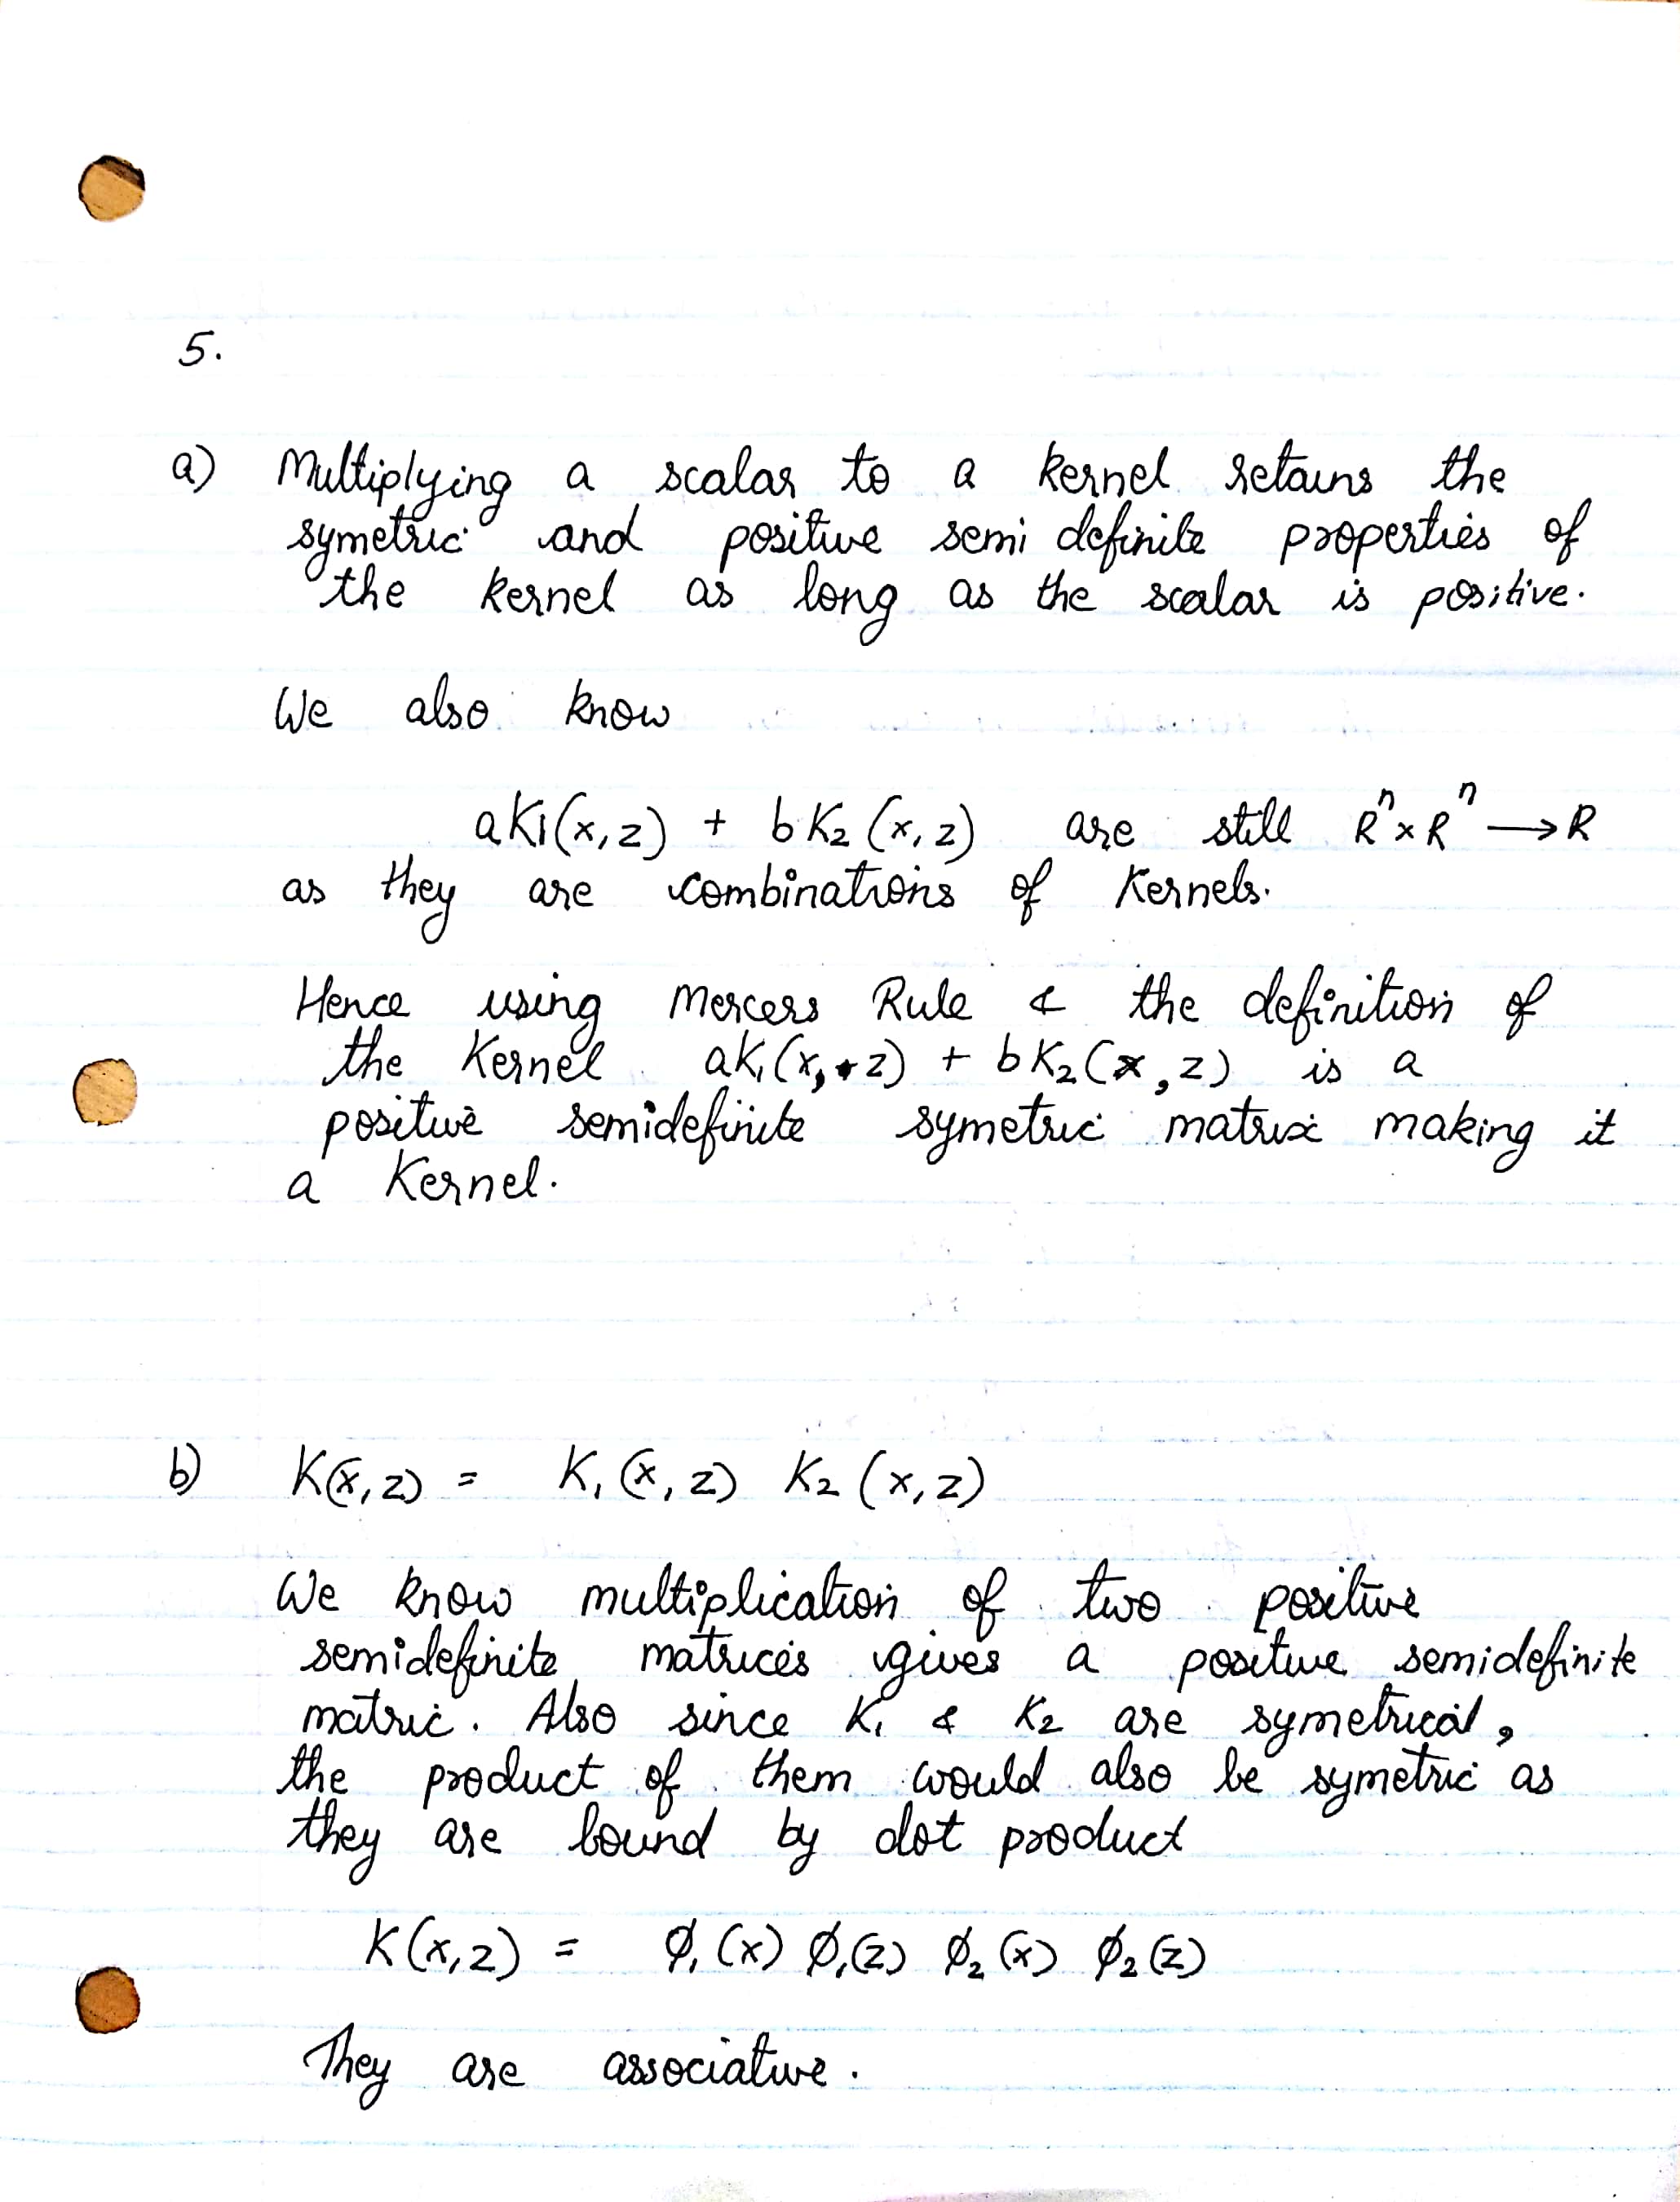 5.
a) Multiplying a scalar to a kernel retains the
symetric and positive semi definite properties of
the kernel as long as the scalar is positive.
We also know
aK1(x,z) + bK2(x,z) are still R^n × R^n → R
as they are combinations of Kernels.
Hence using Mercers Rule & the definition of
the Kernel aK1(x,z) + bK2(x,z) is a
positive semidefinite symetric matrix making it
a Kernel.
b) K(x,z) = K1(x,z) K2(x,z)
We know multiplication of two positive
semidefinite matrices gives a positive semidefinite
matric. Also since K1 & K2 are symetrical,
the product of them would also be symetric as
they are bound by dot product
K(x,z) = ϕ1(x) ϕ1(z) ϕ2(x) ϕ2(z)
They are associative.